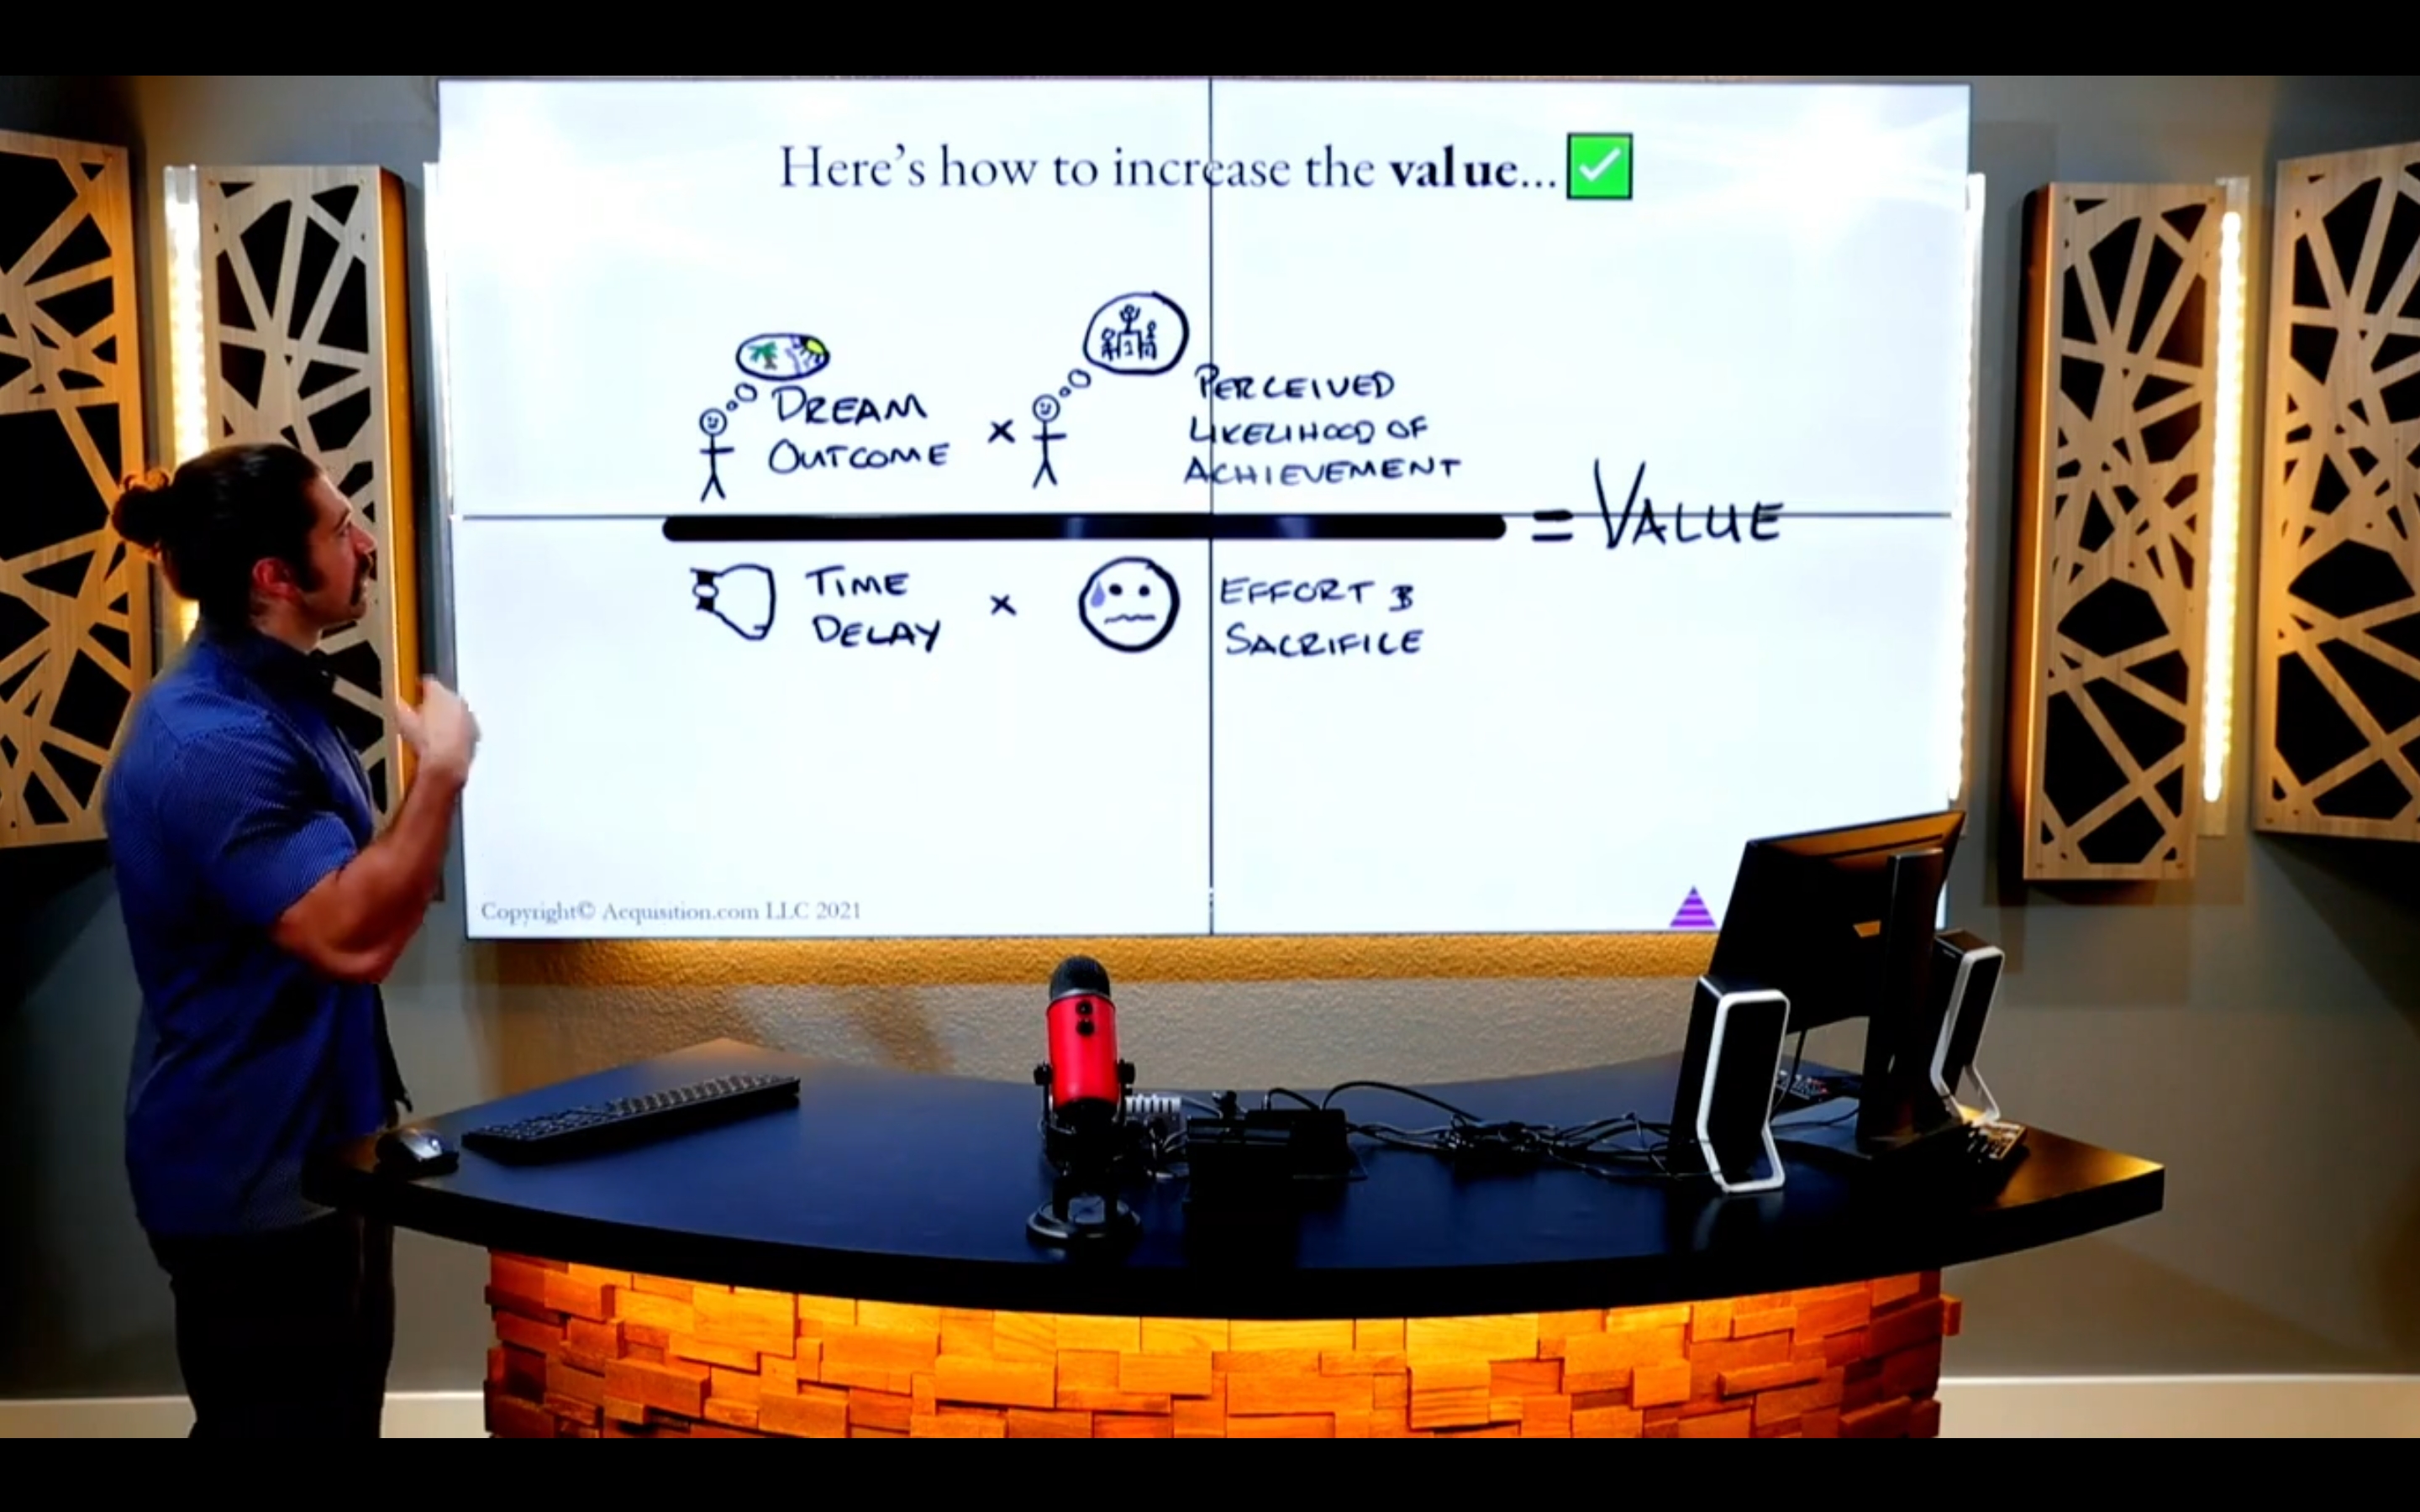 Here's how to increase the value...
DREAM
OUTCOME
×
PERCEIVED
LIKELIHOOD OF
ACHIEVEMENT
= VALUE
TIME
DELAY
×
EFFORT &
SACRIFICE
Copyright© Acquisition.com LLC 2021